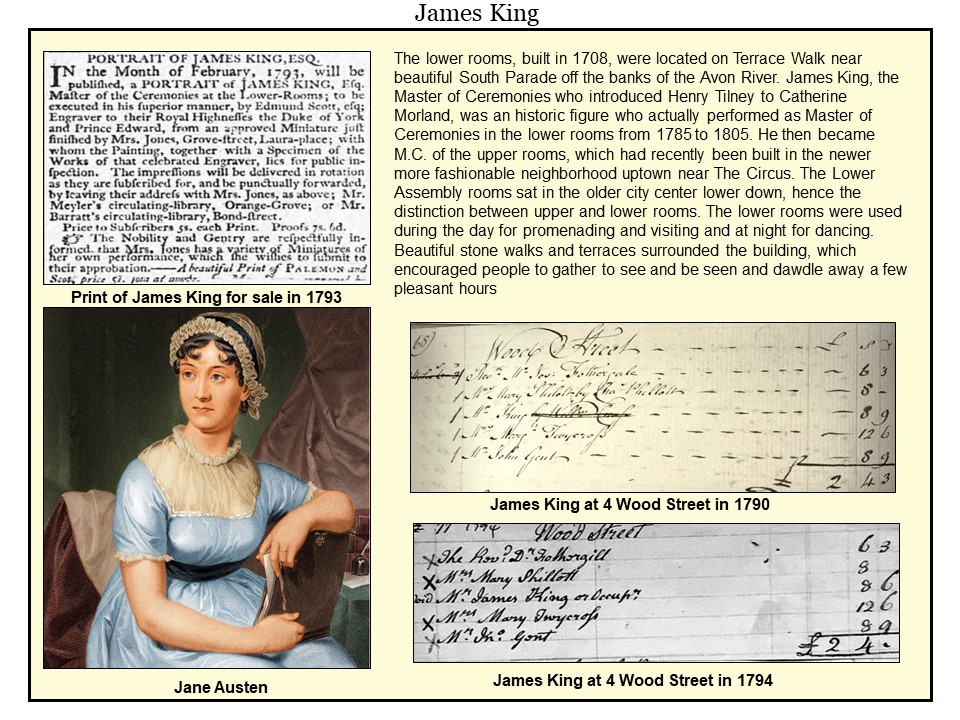 James King
PORTRAIT OF JAMES KING, ESQ.
IN the Month of February, 1793, will be
publiſhed, a PORTRAIT of JAMES KING, Eſq.
Maſter of the Ceremonies at the Lower-Rooms; to be
executed in his ſuperior manner, by Edmund Scott, eſq;
Engraver to their Royal Highneſſes the Duke of York
and Prince Edward, from an approved Miniature juſt
finiſhed by Mrs. Jones, Grove-ſtreet, Laura-place; with
whom the Painting, together with a Specimen of the
Works of that celebrated Engraver, lies for public in-
ſpection. The impreſſions will be delivered in rotation
as they are ſubſcribed for, and be punctually forwarded,
by leaving their addreſs with Mrs. Jones, as above; Mr.
Meyler's circulating-library, Orange-Grove; or Mr.
Barratt's circulating-library, Bond-ſtreet.
Price to Subſcribers 5s. each Print. Proofs 7s. 6d.
☞ The Nobility and Gentry are reſpectfully in-
formed, that Mrs. Jones has a variety of Miniatures of
her own performance, which ſhe wiſhes to ſubmit to
their approbation.——A beautiful Print of PALEMON and
Print of James King for sale in 1793
Jane Austen
The lower rooms, built in 1708, were located on Terrace Walk near
beautiful South Parade off the banks of the Avon River. James King, the
Master of Ceremonies who introduced Henry Tilney to Catherine
Morland, was an historic figure who actually performed as Master of
Ceremonies in the lower rooms from 1785 to 1805. He then became
M.C. of the upper rooms, which had recently been built in the newer
more fashionable neighborhood uptown near The Circus. The Lower
Assembly rooms sat in the older city center lower down, hence the
distinction between upper and lower rooms. The lower rooms were used
during the day for promenading and visiting and at night for dancing.
Beautiful stone walks and terraces surrounded the building, which
encouraged people to gather to see and be seen and dawdle away a few
pleasant hours
Wood Street £
6 3
1 Mrs Mary Phillott by 8 -
1 Mr King 8 9
1 Mrs Mary Twycross 12 6
1 Mr John Gent 8 9
£ 2 4 3
James King at 4 Wood Street in 1790
1794 Wood Street
The Revd Dr Fothergill 6 3
Mrs Mary Phillott 8
Mr James King or Occupr 8 6
Mrs Mary Twycross 12 6
Mr Jno Gent 8 9
£ 2 4
James King at 4 Wood Street in 1794